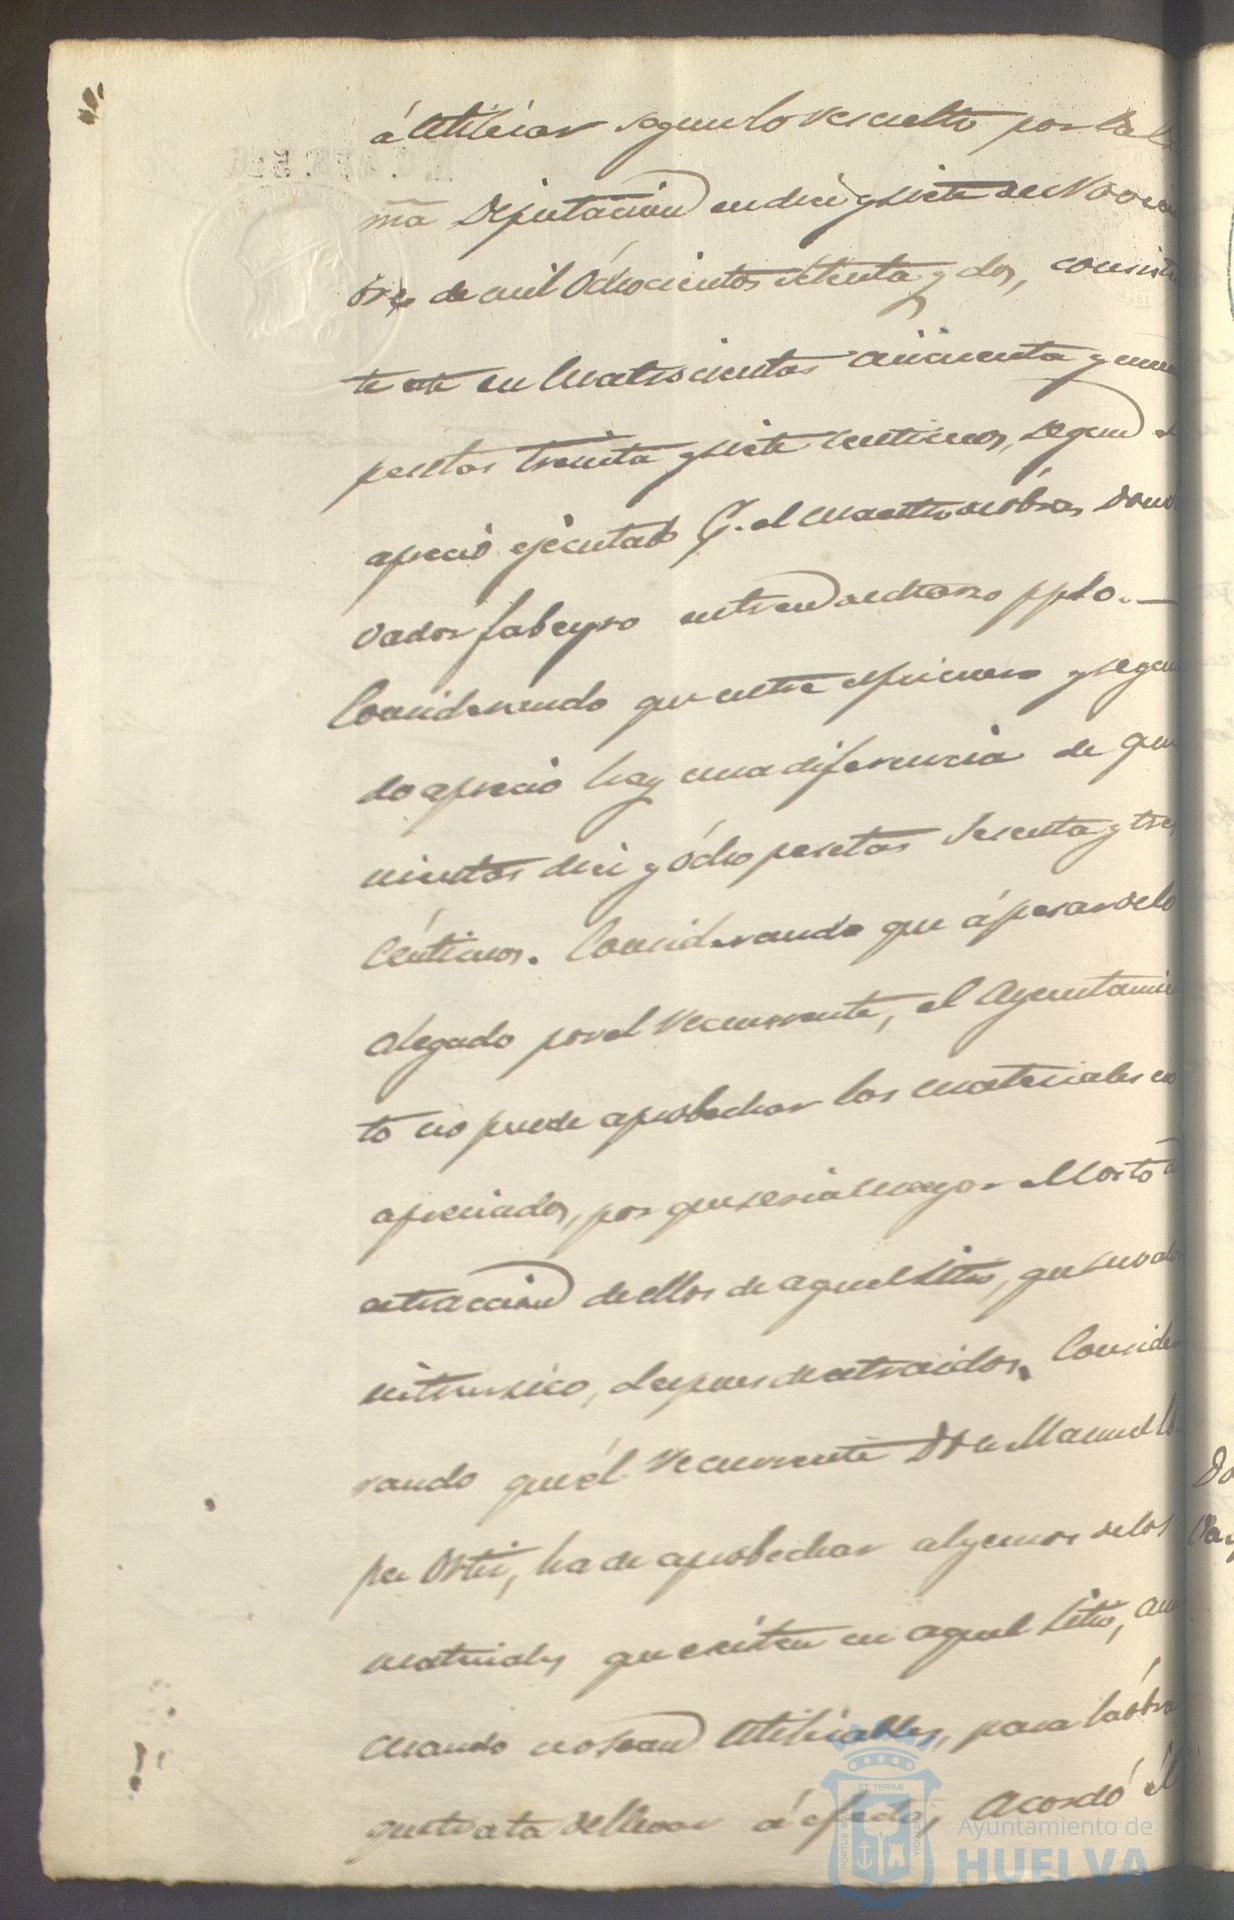 á utilizar segun lo resuelto por la
ma Diputacion en diez y siete de Noviem
bre de mil ochocientos setenta y dos, consis
te este en cuatrocientas cincuenta y
pesetas treinta y siete centimos, segun
aprecio ejecutado el maestro de obras, Don
vador Jabeyro entrend
Considerando que entre el primero y segun
do aprecio hay una diferencia de qui
nientas diez y ocho pesetas sesenta y tres
céntimos. Considerando que á pesar de lo
alegado por el recurrente, el Ayuntamien
to no puede aprobechar los materiales
apreciados, por que seria mayor el costo
extraccion de ellos de aquel sitio, que su valor
intrinsico, despues de extraidos. Conside
rando que el recurrente Don Manuel Lo
pez Ortiz, ha de aprobechar algunos de los
materiales que existen en aquel sitio, aun
cuando no sean utilizables, para la obra
que trata de llevar á efecto, Acordó el
PORTUS MARIS
ET TERRÆ
CUSTODIA
Ayuntamiento de
HUELVA